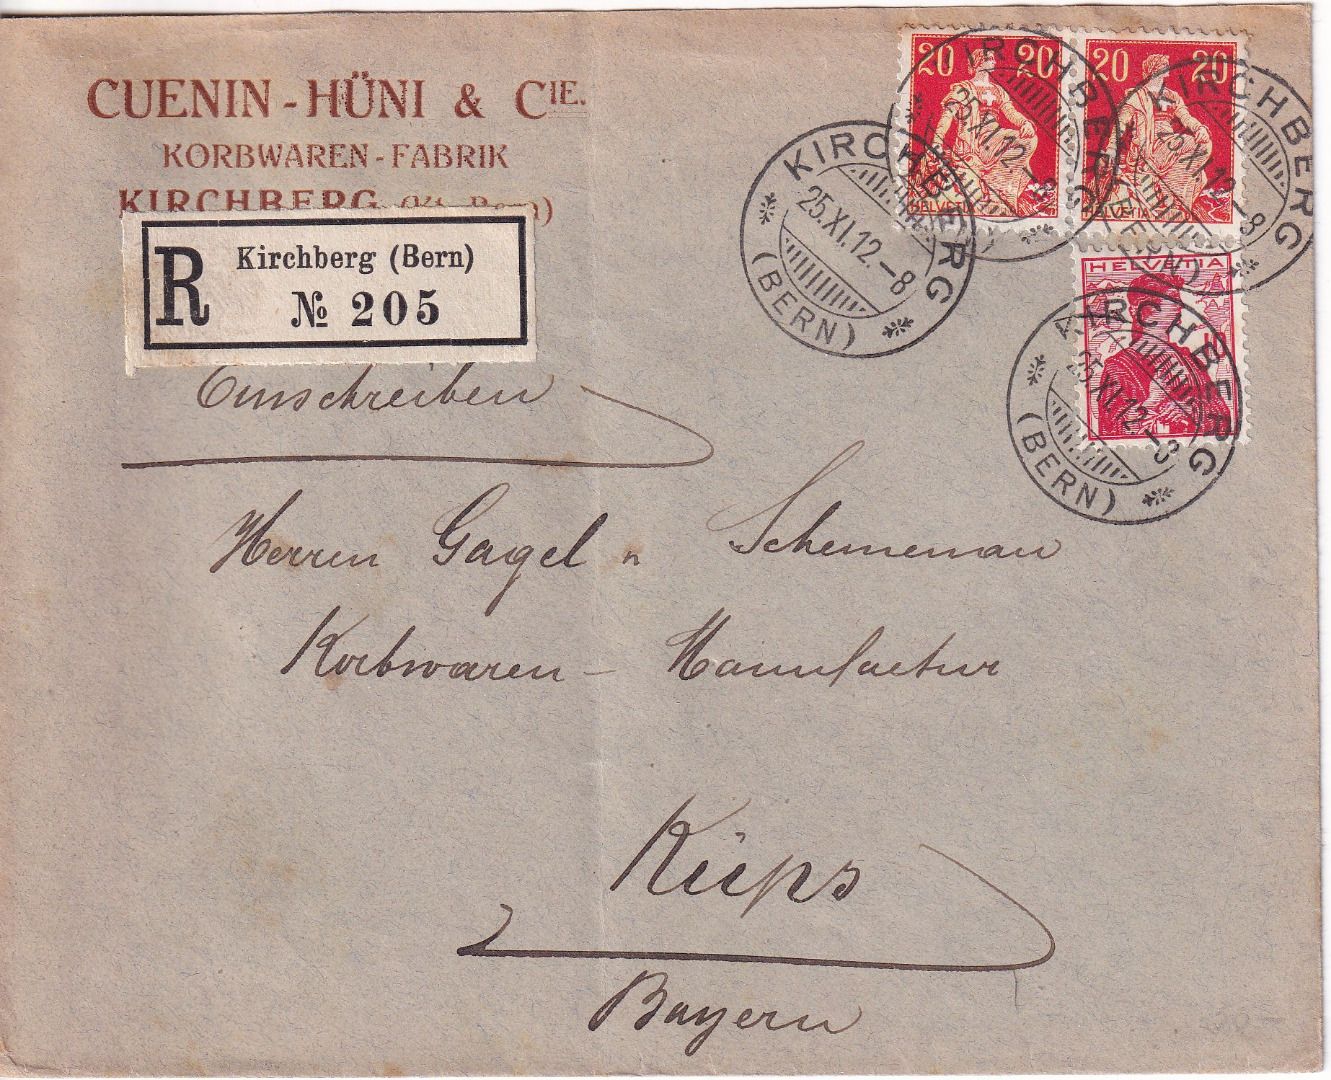 CUENIN-HÜNI & CIE.
KORBWAREN-FABRIK
KIRCHBERG
R
Kirchberg (Bern)
№ 205
Einschreiben
Herren Gagel n Schememan
Korbwaren - Manufactur
Küps
Bayern
20 20
HELVETIA
20 20
HELVETIA
HELVETIA
KIRCHBERG
25.XI.12.-8
(BERN)
KIRCHBERG
25.XI.12.-8
KIRCHBERG
25.XI.12.-8
(BERN)
KIRCHBERG
25.XI.12.-8
(BERN)